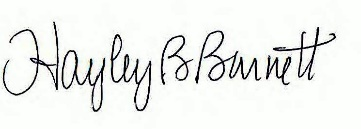 Hayley B Burnett